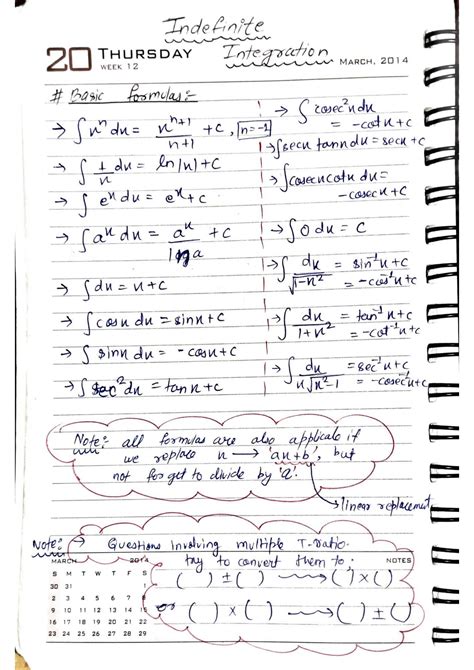 Indefinite
Integration
20 THURSDAY
WEEK 12
MARCH, 2014
# Basic formulas:-
→ ∫xⁿdx = xⁿ⁺¹/n+1 + c, n=-1
→ ∫1/x dx = ln|x| + c
→ ∫eˣdx = eˣ + c
→ ∫aˣdx = aˣ/log a + c
→ ∫dx = x + c
→ ∫cosx dx = sinx + c
→ ∫sinx dx = -cosx + c
→ ∫sec²dx = tanx + c
→ ∫cosec²xdx
= -cotx + c
→ ∫secx tanx dx = secx + c
→ ∫cosecx cotx dx =
-cosecx + c
→ ∫0dx = c
→ ∫dx/√1-x² = sin⁻¹x + c
= -cos⁻¹x + c
→ ∫dx/1+x² = tan⁻¹x + c
= -cot⁻¹x + c
→ ∫dx/x√x²-1 = sec⁻¹x + c
= -cosec⁻¹x + c
Note: all formulas are also applicale if
we replace x → 'ax+b', but
not forget to divide by 'a'.
→ linear replacement
Note: → Questions involving multiple T-ratio.
try to convert them to:
( ) ± ( ) → ( ) × ( )
or ( ) × ( ) → ( ) ± ( )
MARCH 2014
NOTES
S M T W T F S
30 31 1
2 3 4 5 6 7 8
9 10 11 12 13 14 15
16 17 18 19 20 21 22
23 24 25 26 27 28 29